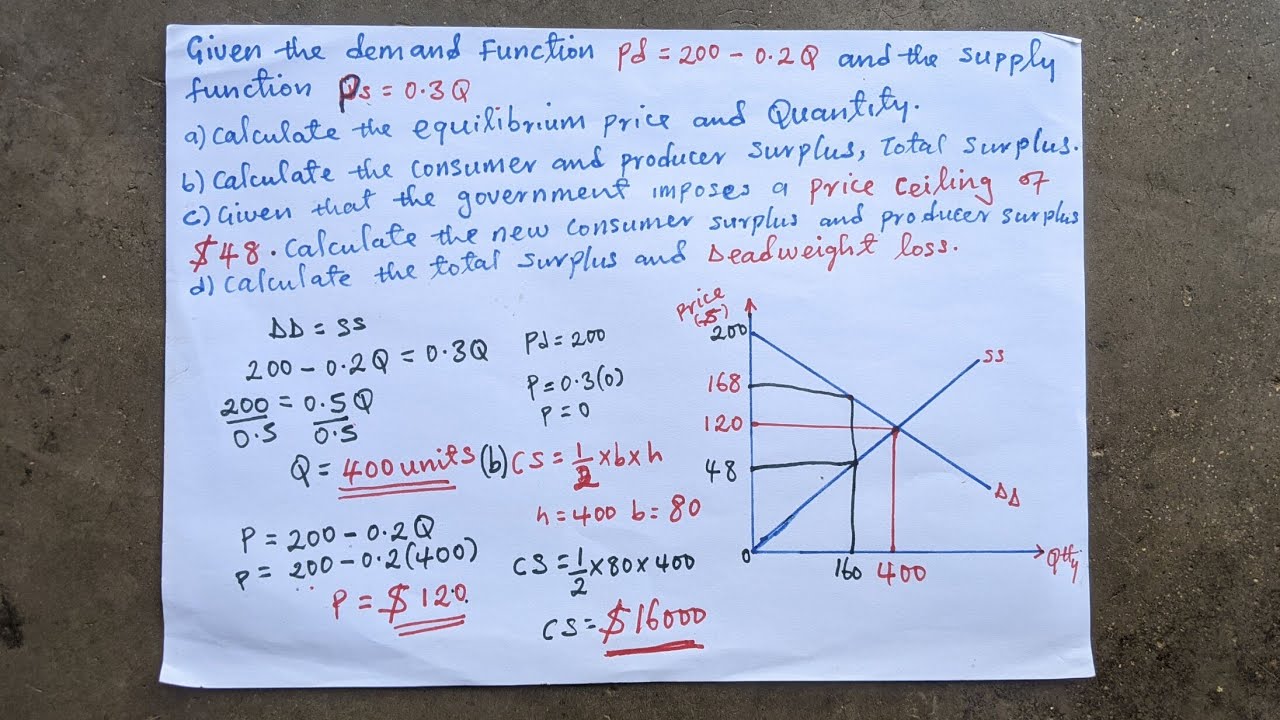 Given the demand Function Pd = 200 - 0.2Q and the supply
function Ps = 0.3Q
a) Calculate the equilibrium price and Quantity.
b) Calculate the consumer and producer surplus, Total surplus.
c) Given that the government imposes a price ceiling of
$48. Calculate the new consumer surplus and producer surplus
d) Calculate the total surplus and Deadweight loss.
DD = SS
200 - 0.2Q = 0.3Q
200/0.5 = 0.5Q/0.5
Q = 400 units
P = 200 - 0.2Q
P = 200 - 0.2(400)
P = $120.
Pd = 200
P = 0.3(0)
P = 0
(b) CS = 1/2 × b × h
h = 400 b = 80
CS = 1/2 × 80 × 400
CS = $16000
Price
($)
200
168
120
48
0
160
400
Qtty
SS
DD